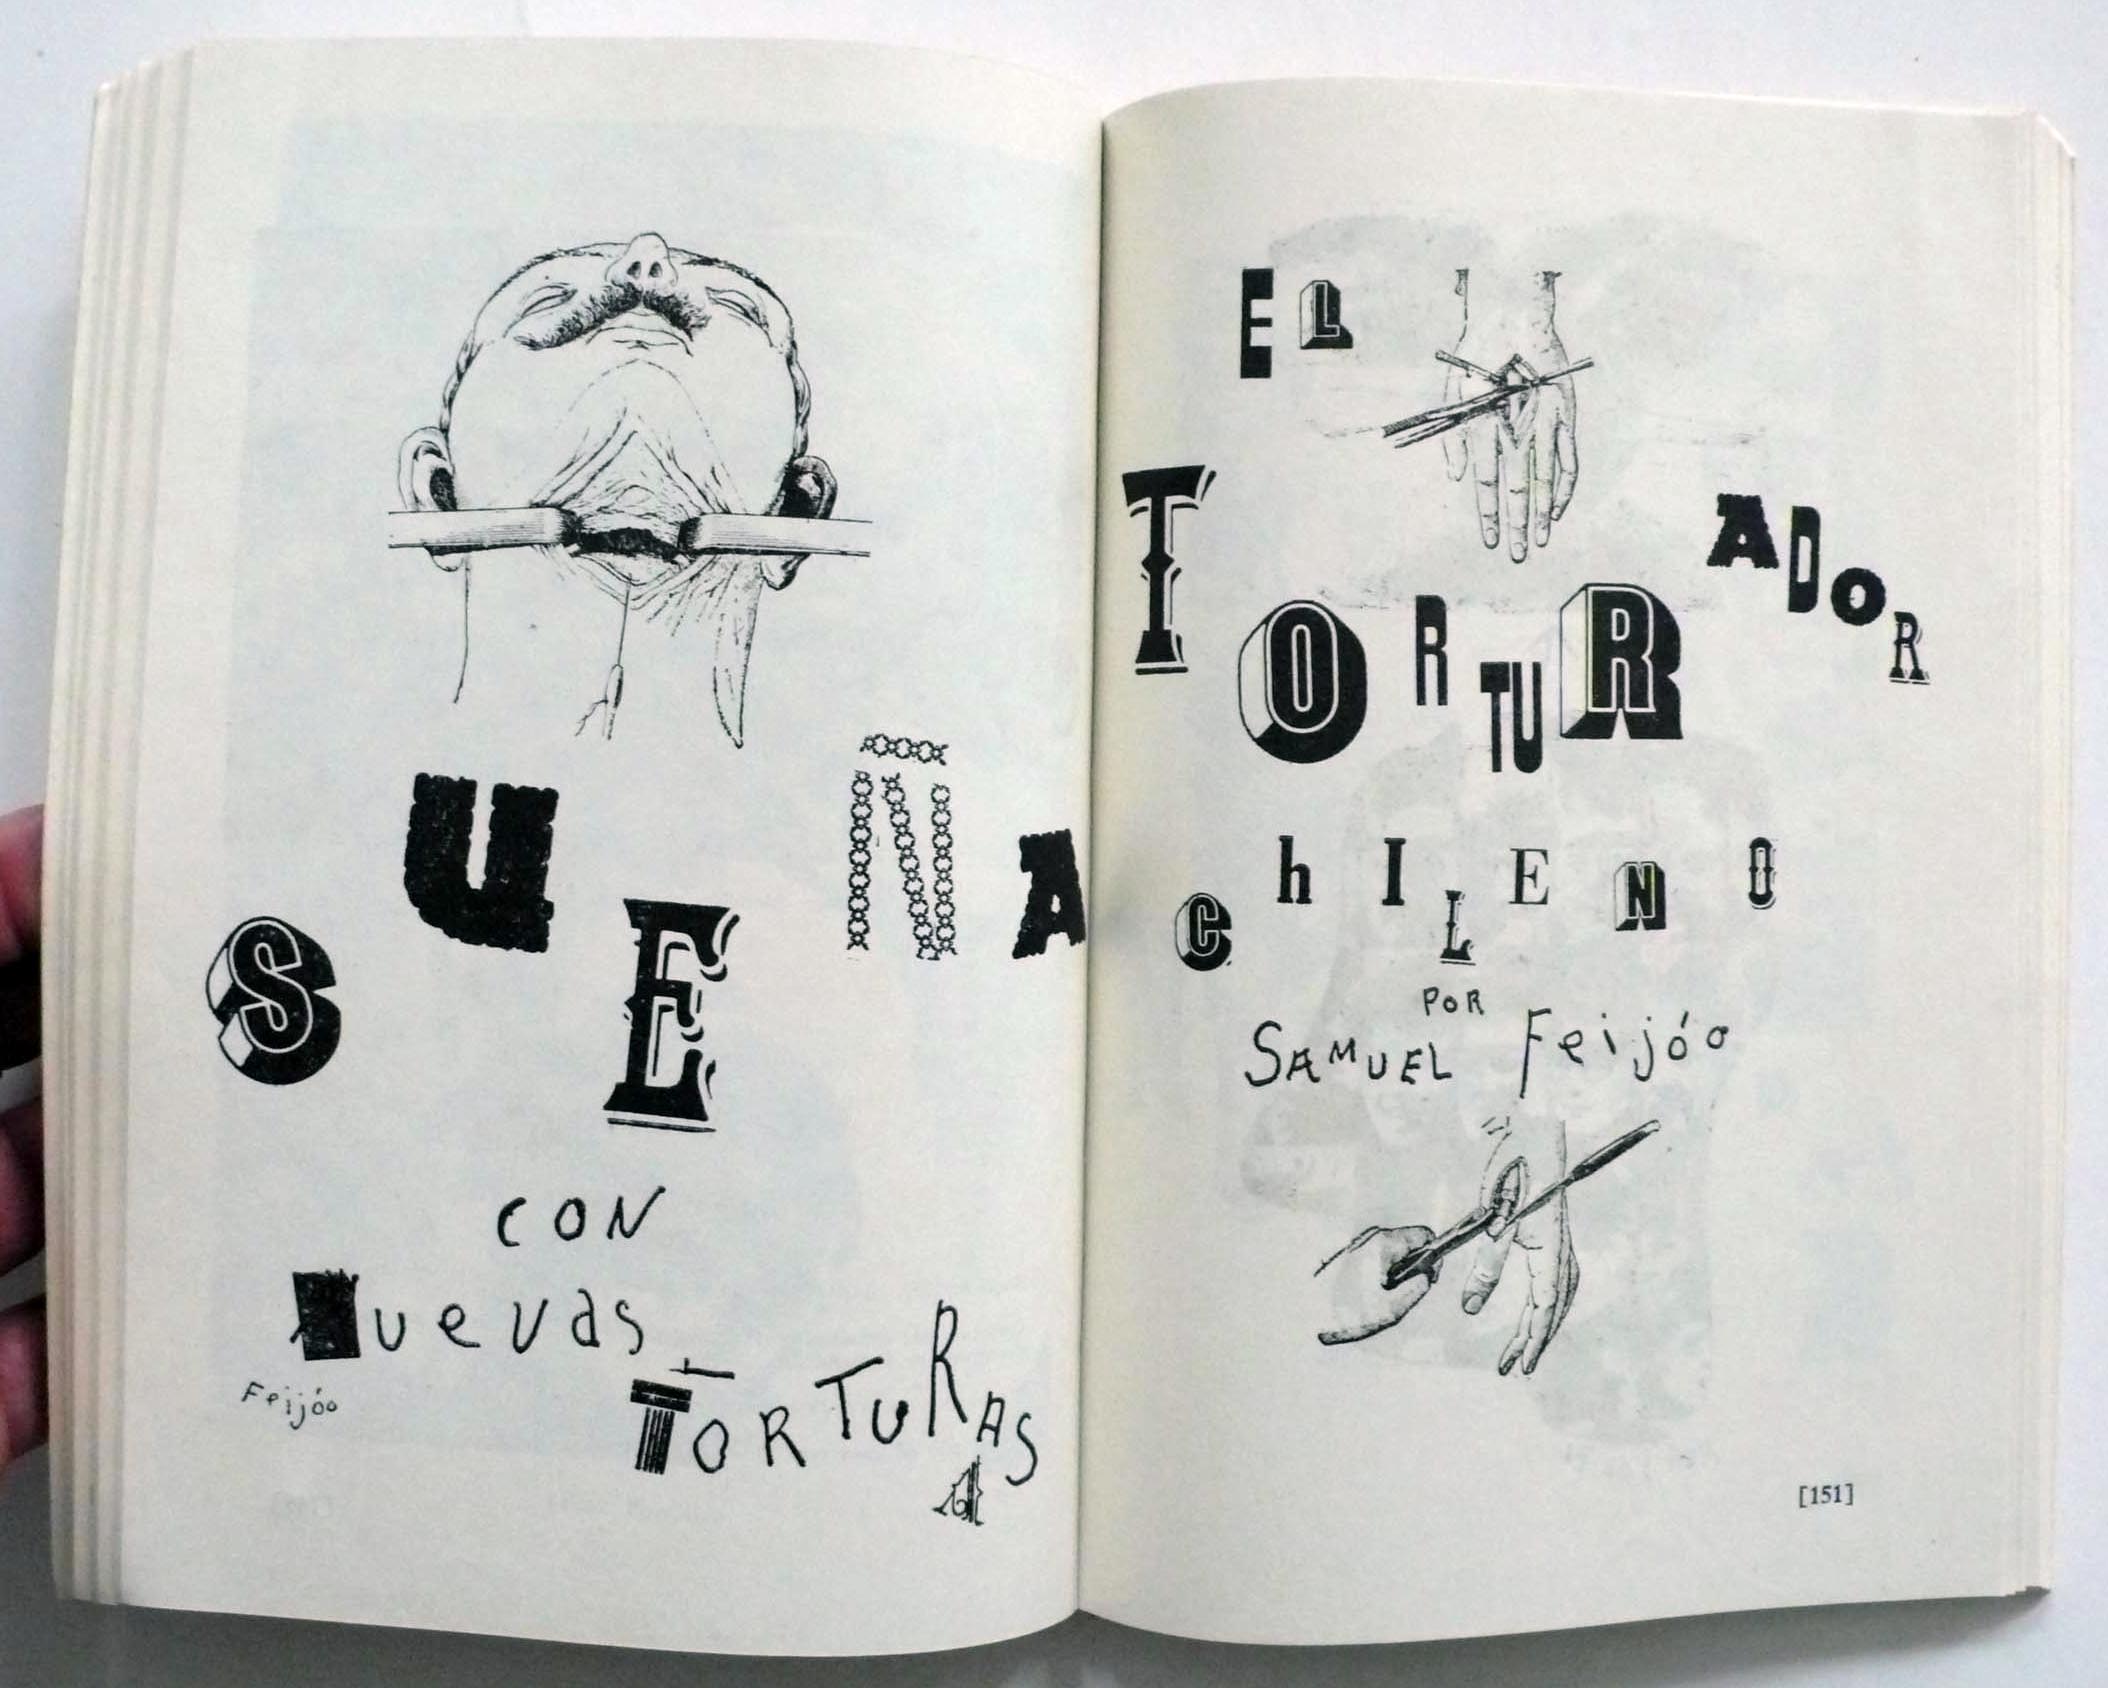 SUEÑA
CON
NUEVAS
Feijóo
TORTURAS
1
EL
TORTURADOR
ChILENO
POR
SAMUEL Feijóo
[151]